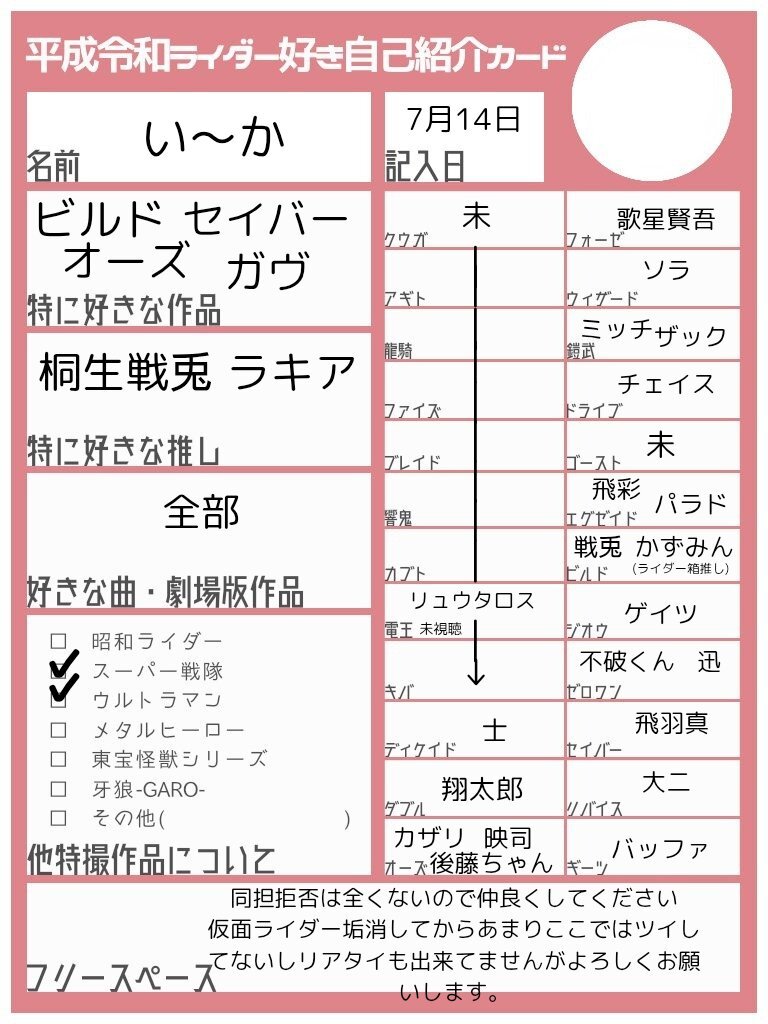 平成令和ライダー好き自己紹介カード
い〜か
名前
7月14日
記入日
ビルド セイバー
オーズ ガヴ
特に好きな作品
桐生戦兎 ラキア
特に好きな推し
全部
好きな曲・劇場版作品
□ 昭和ライダー
✔ スーパー戦隊
✔ ウルトラマン
□ メタルヒーロー
□ 東宝怪獣シリーズ
□ 牙狼-GARO-
□ その他( )
他特撮作品について
未
クウガ
アギト
龍騎
ファイズ
ブレイド
響鬼
カブト
リュウタロス
電王 未視聴
キバ
士
ディケイド
翔太郎
ダブル
カザリ 映司
オーズ 後藤ちゃん
歌星賢吾
フォーゼ
ソラ
ウィザード
ミッチ ザック
鎧武
チェイス
ドライブ
未
ゴースト
飛彩 パラド
エグゼイド
戦兎 かずみん
ビルド (ライダー箱推し)
ゲイツ
ジオウ
不破くん 迅
ゼロワン
飛羽真
セイバー
大二
リバイス
バッファ
ギーツ
同担拒否は全くないので仲良くしてください
仮面ライダー垢消してからあまりここではツイし
てないしリアタイも出来てませんがよろしくお願
いします。
フリースペース